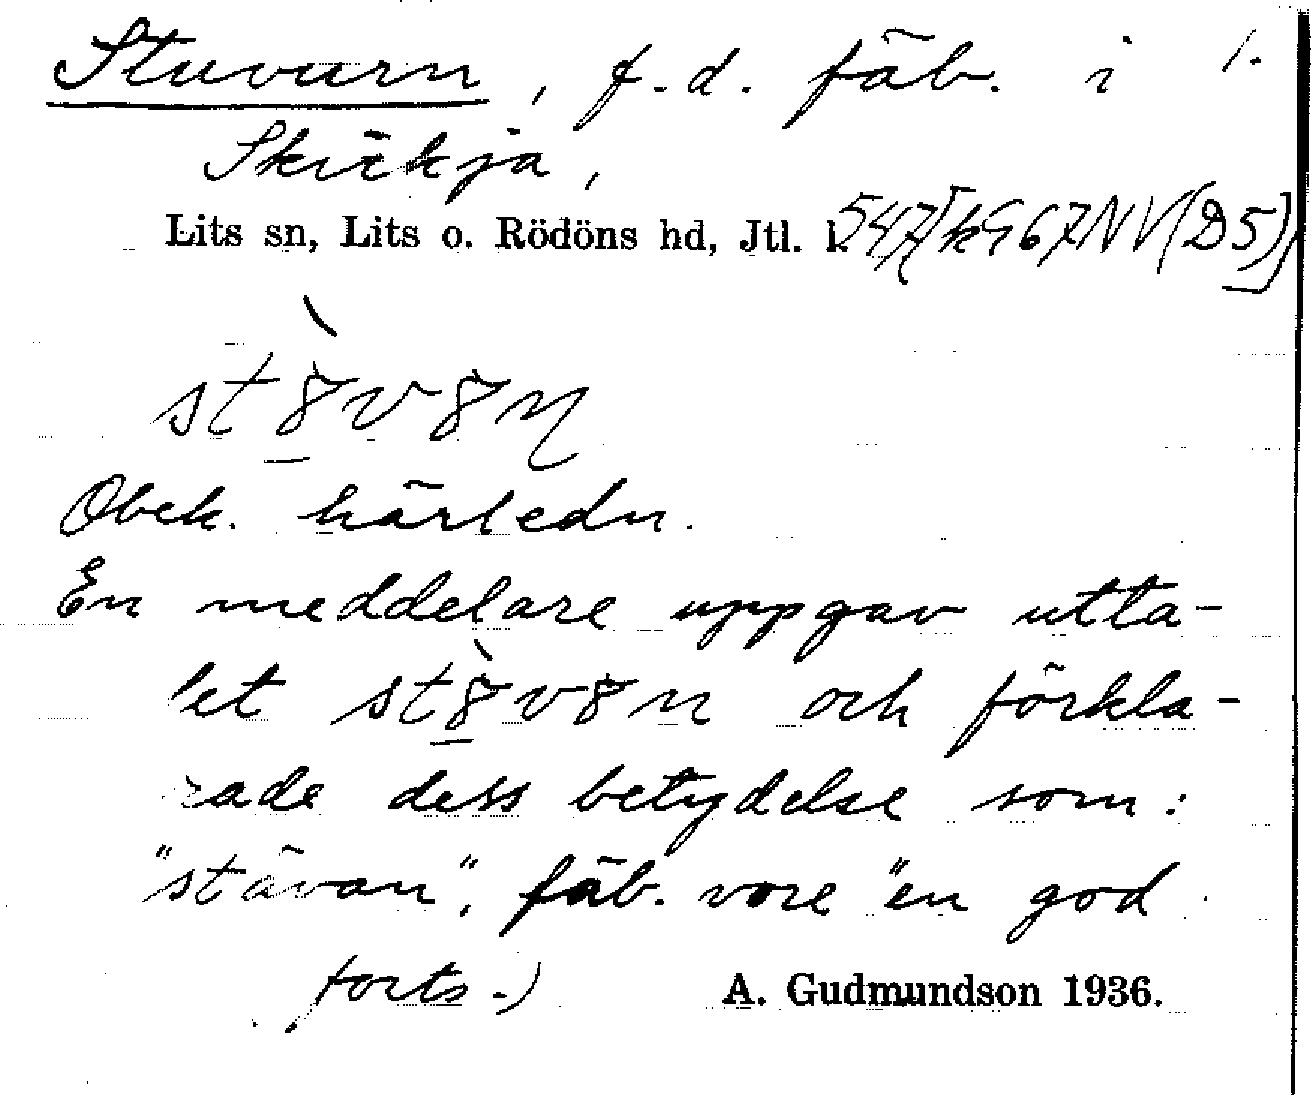 Stuvurn, f.d. fäb. i 1.
Skickja,
Lits sn, Lits o. Rödöns hd, Jtl. l.
Obek. härledn.
En meddelare uppgav utta-
let och förkla-
rade dess betydelse som:
"stävan", fäb. vore "en god
forts.)
A. Gudmundson 1936.